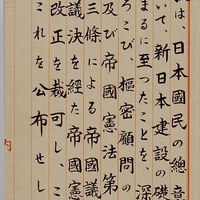 は、日本國民の總意
いて、新日本建設の礎
まるに至つたことを、深
ろこび、樞密顧問の
及び帝國憲法第
三條による帝國議
議決を経た帝國憲
改正を裁可し、こ
これを公布せし